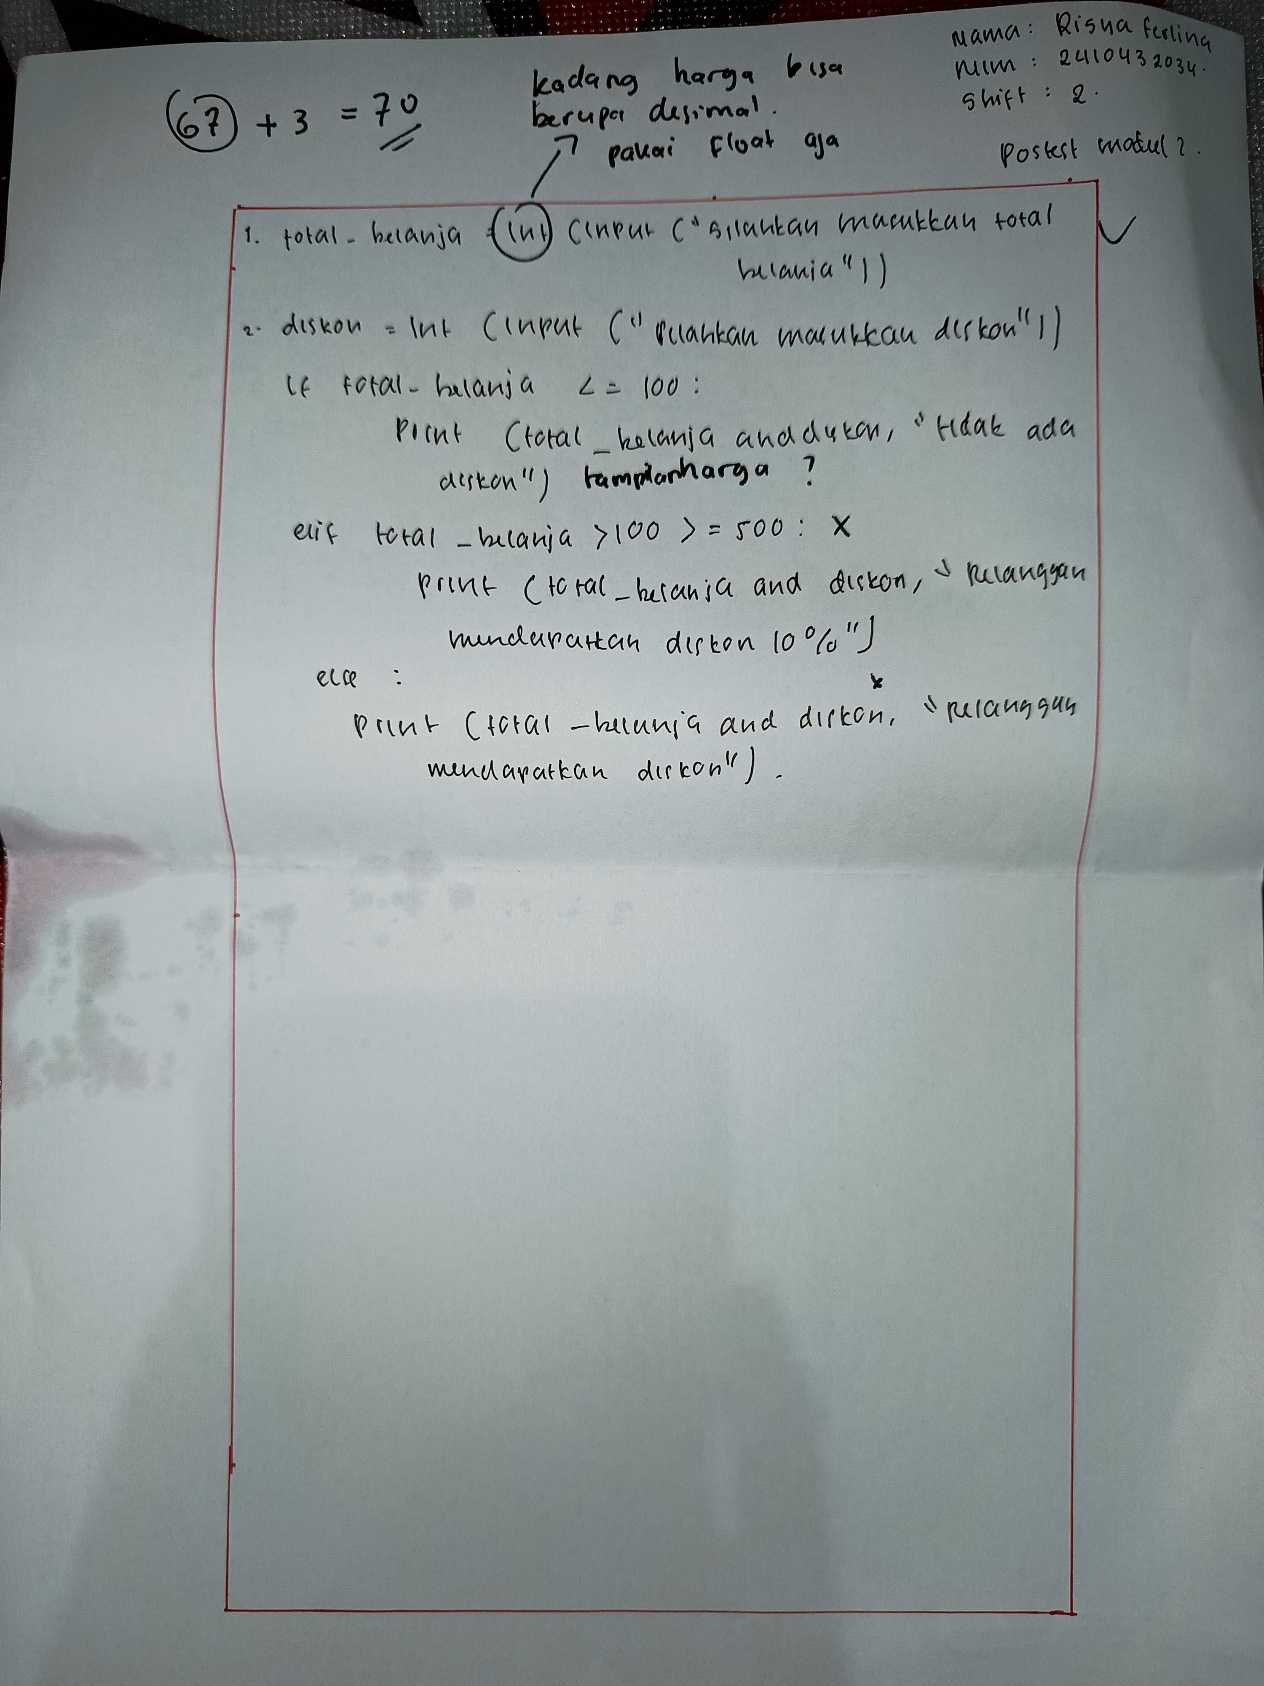 Nama : Risya Ferlina
Nim : 2410432034.
Shift : 2.
Postest modul 2.
67 + 3 = 70
kadang harga bisa
berupa desimal.
pakai float aja
1. total_belanja = int (input ("silahkan masukkan total
belanja"))
2. diskon = int (input ("silahkan masukkan diskon"))
if total_belanja <= 100 :
print (total_belanja and diskon, "tidak ada
diskon") tampilan harga ?
elif total_belanja >100 >= 500 : X
print (total_belanja and diskon, "pelanggan
mendapatkan diskon 10%")
else :
x
print (total_belanja and diskon, "pelanggan
mendapatkan diskon").